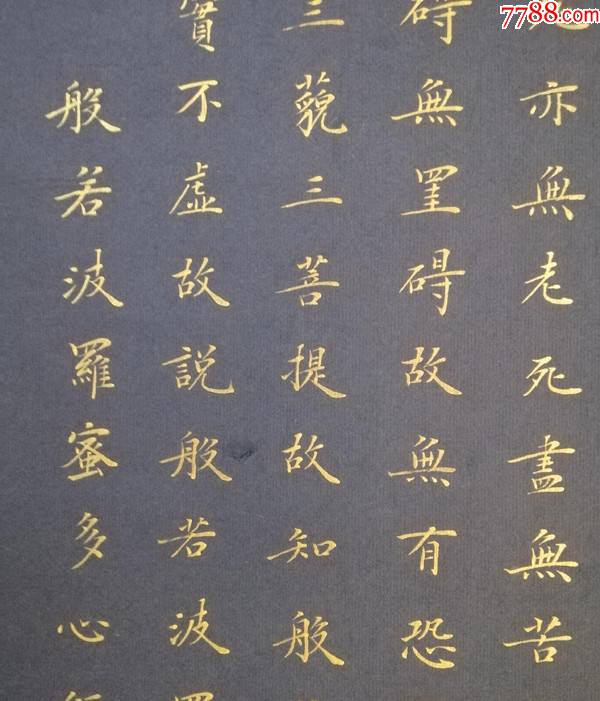 7788.com
亦無老死盡無苦
碍無罣碍故無有恐
三藐三菩提故知般
實不虛故說般若波
般若波羅蜜多心